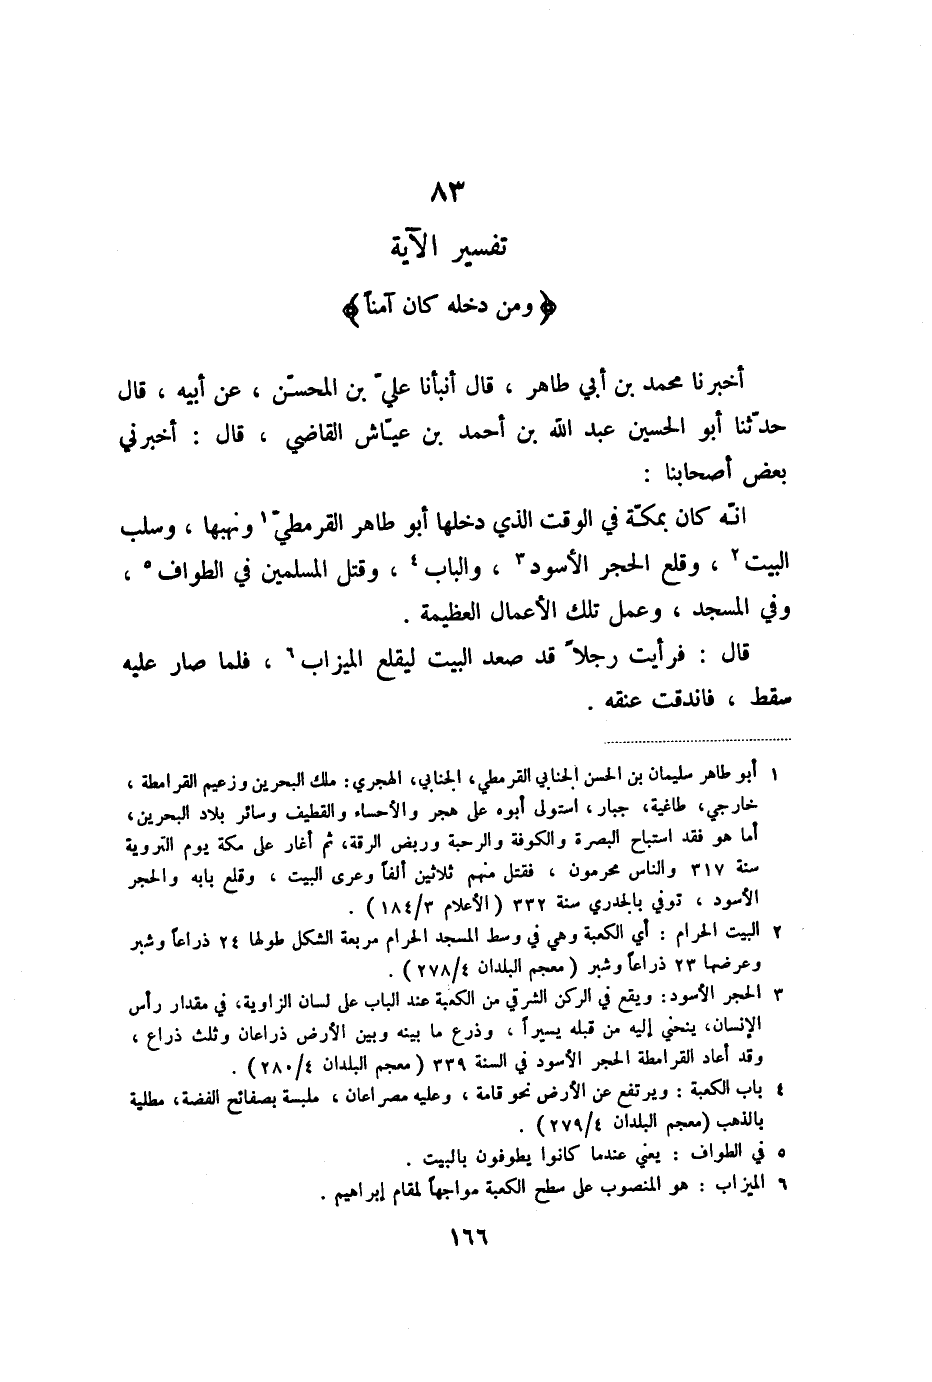 ٨٣
تفسير الآية
﴿ ومن دخله كان آمناً ﴾
أخبرنا محمد بن أبي طاهر ، قال أنبأنا عليّ بن المحسّن ، عن أبيه ، قال
حدّثنا أبو الحسين عبد الله بن أحمد بن عيّاش القاضي ، قال : أخبرني
بعض أصحابنا :
انّه كان بمكّة في الوقت الذي دخلها أبو طاهر القرمطيّ١ ونهبها ، وسلب
البيت٢ ، وقلع الحجر الأسود٣ ، والباب٤ ، وقتل المسلمين في الطواف٥ ،
وفي المسجد ، وعمل تلك الأعمال العظيمة .
قال : فرأيت رجلاً قد صعد البيت ليقلع الميزاب٦ ، فلما صار عليه
سقط ، فاندقت عنقه .
١ أبو طاهر سليمان بن الحسن الجنابي القرمطي، الجنابي، الهجري: ملك البحرين وزعيم القرامطة ،
خارجي، طاغية، جبار، استولى أبوه على هجر والأحساء والقطيف وسائر بلاد البحرين،
أما هو فقد استباح البصرة والكوفة والرحبة وربض الرقة، ثم أغار على مكة يوم التروية
سنة ٣١٧ والناس محرمون ، فقتل منهم ثلاثين ألفاً وعرى البيت ، وقلع بابه والحجر
الأسود ، توفي بالجدري سنة ٣٣٢ ( الأعلام ١٨٤/٣ ) .
٢ البيت الحرام : أي الكعبة وهي في وسط المسجد الحرام مربعة الشكل طولها ٢٤ ذراعاً وشبر
وعرضها ٢٣ ذراعاً وشبر ( معجم البلدان ٢٧٨/٤ ) .
٣ الحجر الأسود: ويقع في الركن الشرقي من الكعبة عند الباب على لسان الزاوية، في مقدار رأس
الإنسان، ينحني إليه من قبله يسيراً ، وذرع ما بينه وبين الأرض ذراعان وثلث ذراع ،
وقد أعاد القرامطة الحجر الأسود في السنة ٣٣٩ ( معجم البلدان ٢٨٠/٤ ) .
٤ باب الكعبة : ويرتفع عن الأرض نحو قامة ، وعليه مصراعان ، ملبسة بصفائح الفضة، مطلية
بالذهب (معجم البلدان ٢٧٩/٤ ) .
٥ في الطواف : يعني عندما كانوا يطوفون بالبيت .
٦ الميزاب : هو المنصوب على سطح الكعبة مواجهاً لمقام إبراهيم .
١٦٦